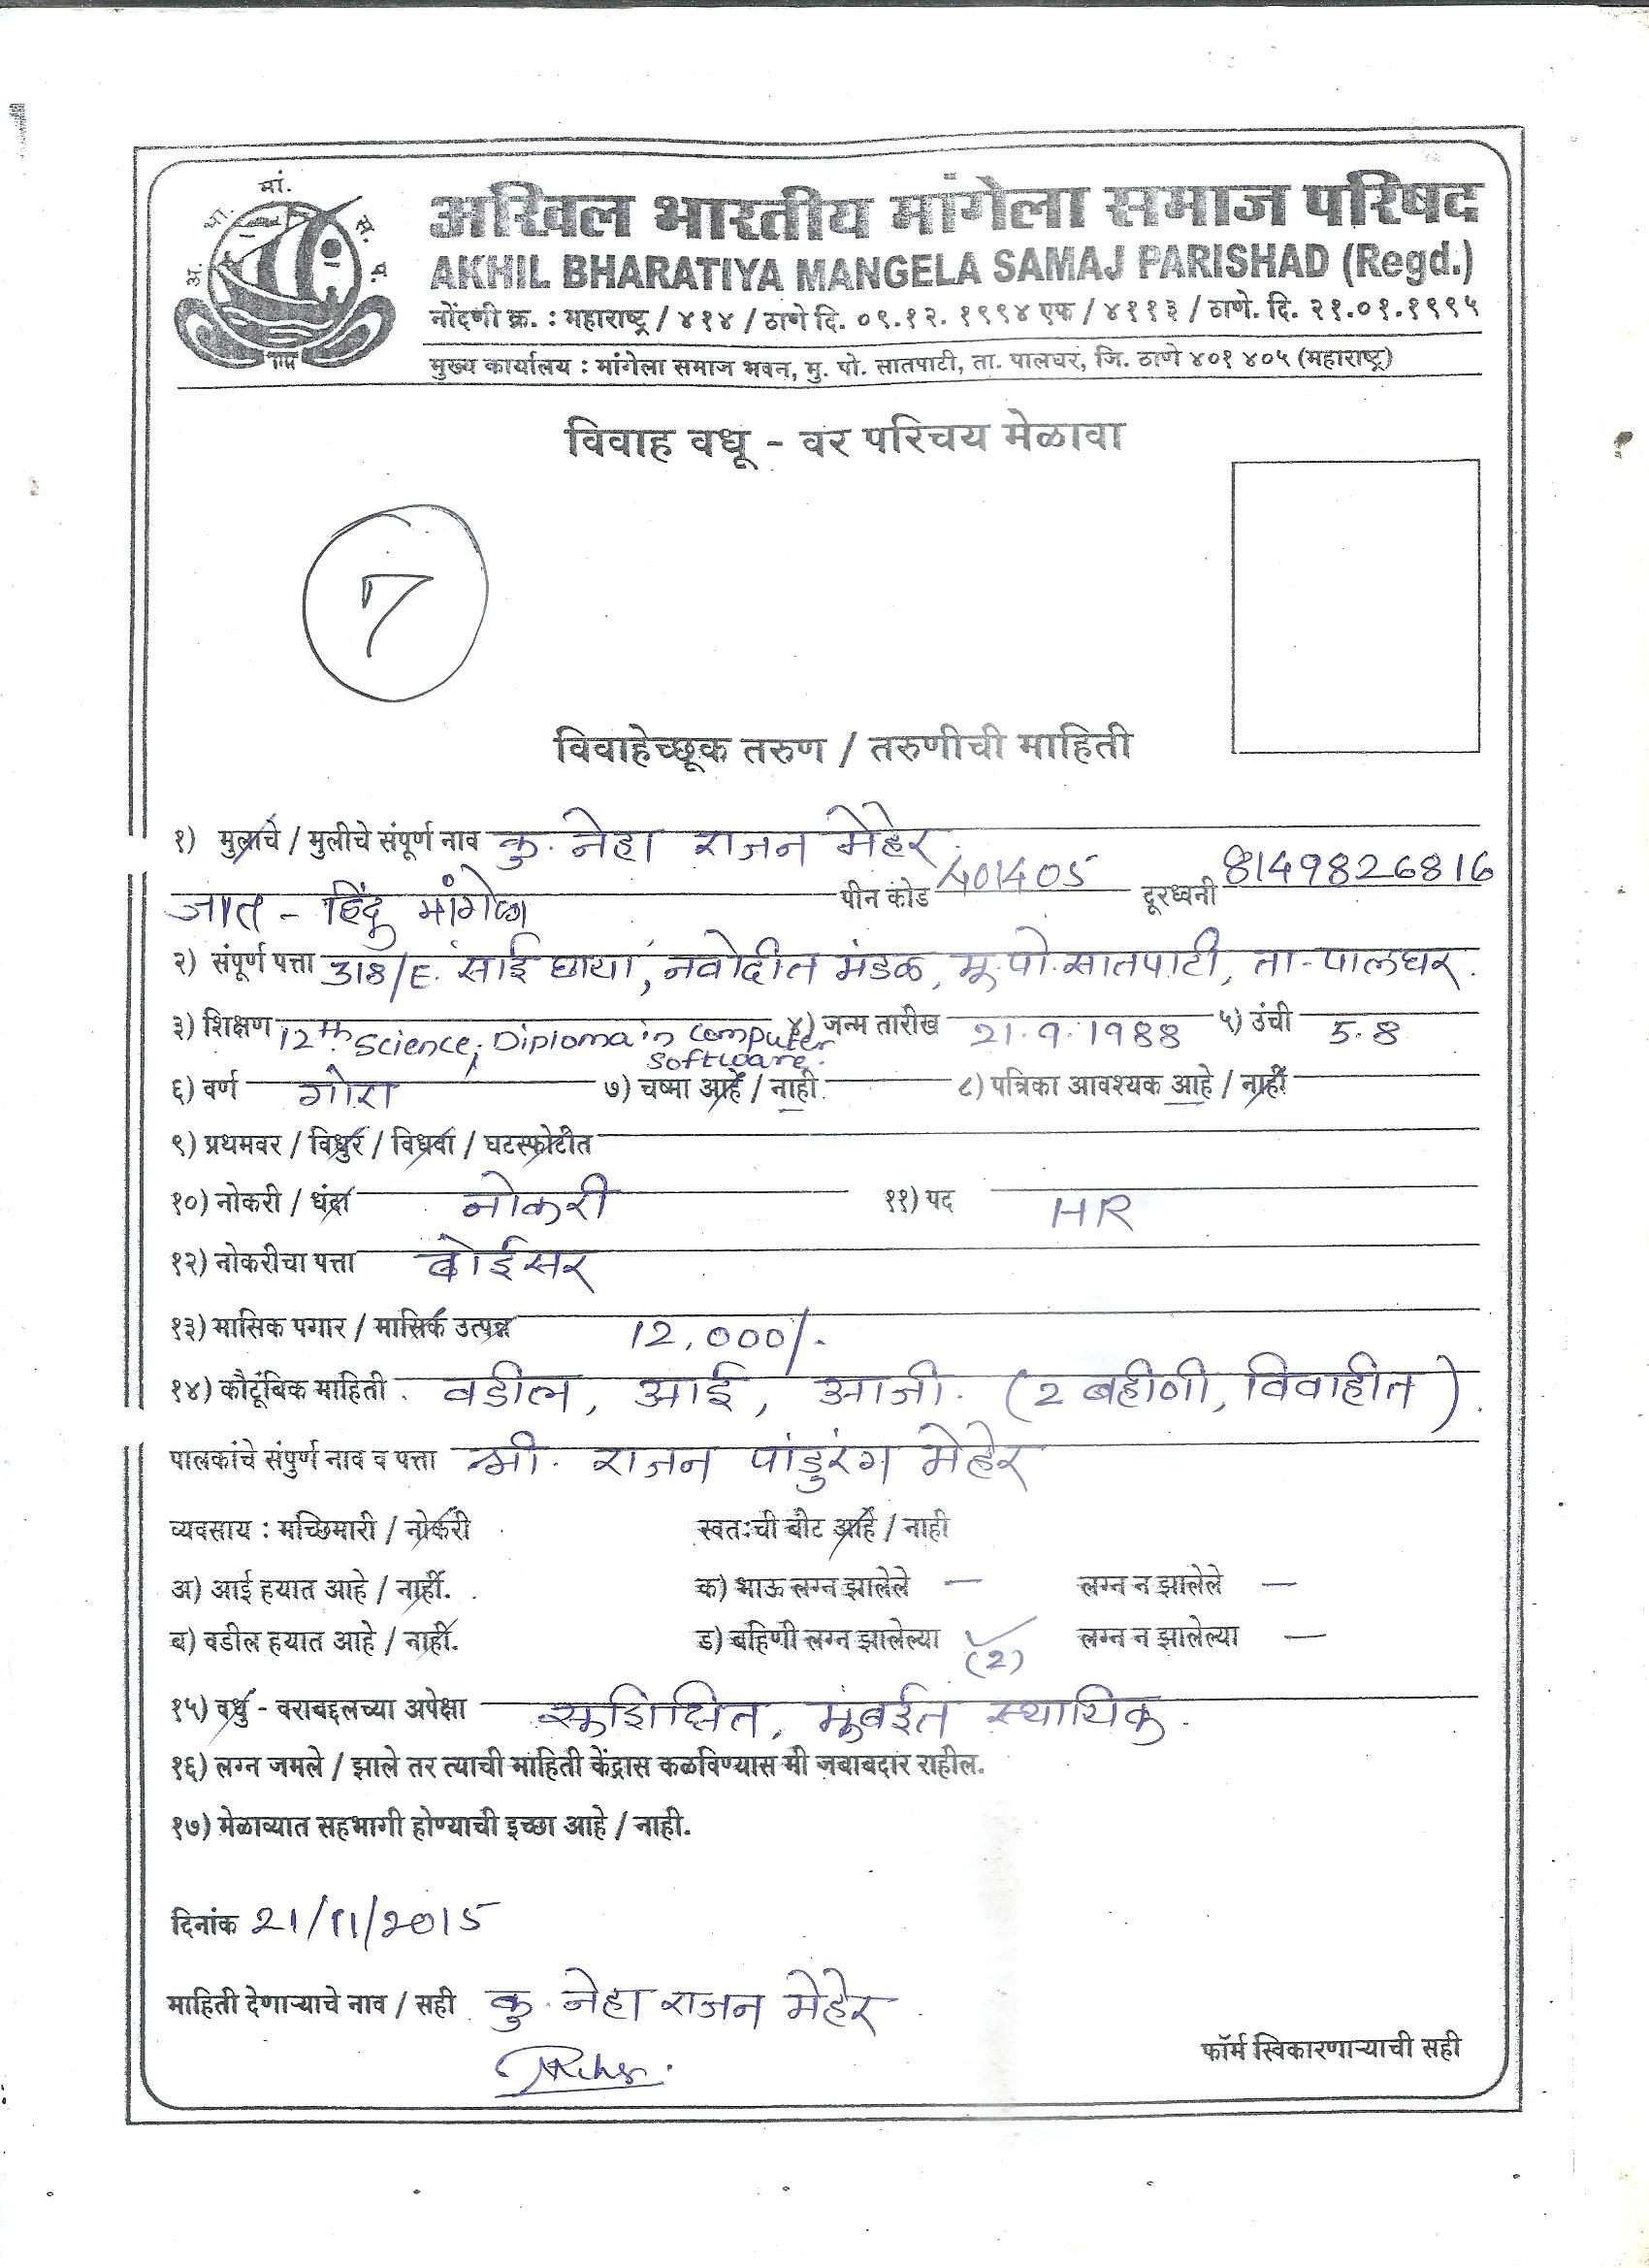 अ. भा. मां. स. प.
अखिल भारतीय मांगेला समाज परिषद
AKHIL BHARATIYA MANGELA SAMAJ PARISHAD (Regd.)
नोंदणी क्र. : महाराष्ट्र / ४१४ / ठाणे दि. ०९.१२. १९९४ एफ / ४११३ / ठाणे. दि. २१.०१.१९९५
मुख्य कार्यालय : मांगेला समाज भवन, मु. पो. सातपाटी, ता. पालघर, जि. ठाणे ४०१ ४०५ (महाराष्ट्र)
विवाह वधू - वर परिचय मेळावा
7
विवाहेच्छूक तरुण / तरुणीची माहिती
१) मुलाचे / मुलीचे संपूर्ण नाव कु. नेहा राजन मेहेर.
जात - हिंदू मांगेला पीन कोड 401405 दूरध्वनी 8149826816
२) संपूर्ण पत्ता 318/E. साई छाया, नवोदीत मंडळ, मू. पो. सातपाटी, ता - पालघर.
३) शिक्षण 12th Science, Diploma in Computer Software. ४) जन्म तारीख 21.9.1988 ५) उंची 5.8
६) वर्ण गोरा ७) चष्मा आहे / नाही ८) पत्रिका आवश्यक आहे / नाही
९) प्रथमवर / विधुर / विधवा / घटस्फोटीत
१०) नोकरी / धंदा नोकरी ११) पद HR
१२) नोकरीचा पत्ता बोईसर
१३) मासिक पगार / मासिक उत्पन्न 12,000/-
१४) कौटूंबिक माहिती वडील, आई, आजी. (2 बहीणी, विवाहीत).
पालकांचे संपुर्ण नाव व पत्ता श्री. राजन पांडुरंग मेहेर
व्यवसाय : मच्छिमारी / नोकरी स्वतःची बोट आहे / नाही
अ) आई हयात आहे / नाही. क) भाऊ लग्न झालेले — लग्न न झालेले —
ब) वडील हयात आहे / नाही. ड) बहिणी लग्न झालेल्या ✓ (2) लग्न न झालेल्या —
१५) वधु - वराबद्दलच्या अपेक्षा सूशिक्षित, मूंबईत स्थायिक.
१६) लग्न जमले / झाले तर त्याची माहिती केंद्रास कळविण्यास मी जबाबदार राहील.
१७) मेळाव्यात सहभागी होण्याची इच्छा आहे / नाही.
दिनांक 21/11/2015
माहिती देणाऱ्याचे नाव / सही कु. नेहा राजन मेहेर
फॉर्म स्विकारणाऱ्याची सही